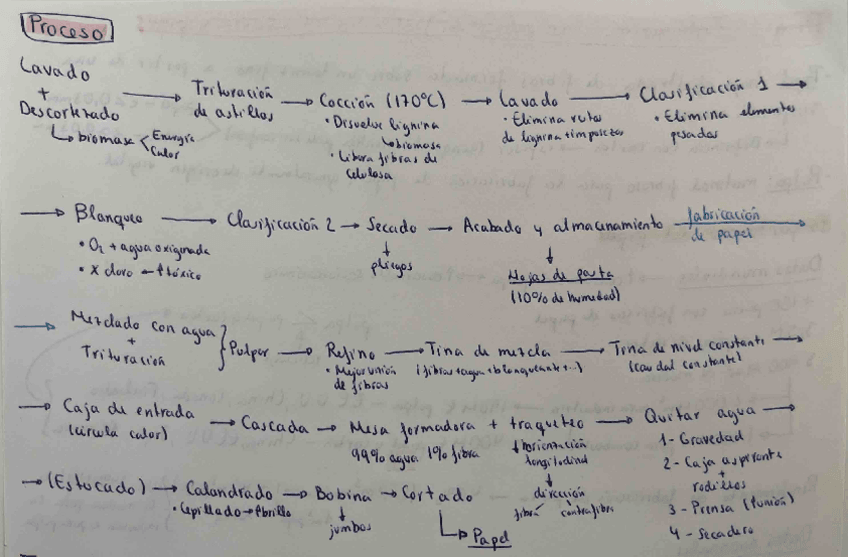 Proceso
Lavado + Descortezado → Trituración de astillas → Cocción (170°C) → Lavado → Clasificación 1 →
↳ biomasa < Energía Calor
• Disuelve lignina
↳ biomasa
• Libera fibras de celulosa
• Elimina restos de lignina + impurezas
• Elimina elementos pesados
→ Blanqueo → Clasificación 2 → Secado → Acabado y almacenamiento fabricación de papel →
• O₂ + agua oxigenada
• X cloro ← tóxico
↓ pliegos
↓ Hojas de pasta
(10% de humedad)
→ Mezclado con agua + Trituración } Pulper → Refino → Tina de mezcla → Tina de nivel constante →
• Mejor unión de fibras
(fibras + agua + blanqueante + ...)
(caudal constante)
→ Caja de entrada → Cascada → Mesa formadora + traqueteo → Quitar agua →
(circula calor)
99% agua 1% fibra
↓ orientación longitudinal
↓ dirección
fibra contrafibra
1 - Gravedad
2 - Caja aspirante + rodillos
3 - Prensa (unión)
4 - Secadero
→ (Estucado) → Calandrado → Bobina → Cortado
• Cepillado → brillo
↓ jumbos
↳ Papel